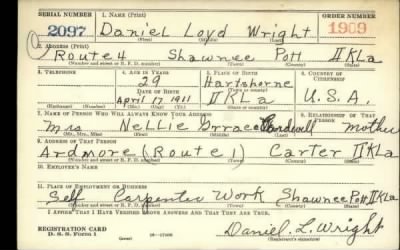 SERIAL NUMBER 1. NAME (Print) ORDER NUMBER
2097 Daniel Loyd Wright 1909
(First) (Middle) (Last)
2. ADDRESS (Print)
Route 4 Shawnee Pott OKLa
(Number and street or R. F. D. number) (Town) (County) (State)
3. TELEPHONE 4. AGE IN YEARS 5. PLACE OF BIRTH 6. COUNTRY OF CITIZENSHIP
29 Hartshorne
DATE OF BIRTH (Town or county)
April 17 1911 OKLa U.S.A.
(Mo.) (Day) (Yr.) (State or country)
7. NAME OF PERSON WHO WILL ALWAYS KNOW YOUR ADDRESS 8. RELATIONSHIP OF THAT PERSON
Mrs Nellie Grrace Cardwell Mother
(Mr., Mrs., Miss) (First) (Middle) (Last)
9. ADDRESS OF THAT PERSON
Ardmore (Route 1) Carter OKLa
(Number and street or R. F. D. number) (Town) (County) (State)
10. EMPLOYER'S NAME
11. PLACE OF EMPLOYMENT OR BUSINESS
Self Carpenter Work Shawnee Pott OKLa
(Number and street or R. F. D. number) (Town) (County) (State)
I AFFIRM THAT I HAVE VERIFIED ABOVE ANSWERS AND THAT THEY ARE TRUE.
REGISTRATION CARD
D. S. S. Form 1 Daniel. L. Wright
(Registrant's signature)